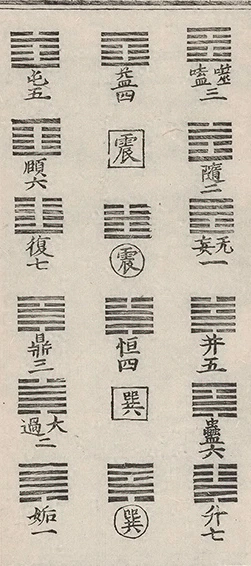 噬嗑三
隨二
无妄一
井五
蠱六
升七
益四
震
震
恒四
巽
巽
屯五
頤六
復七
鼎三
大過二
姤一